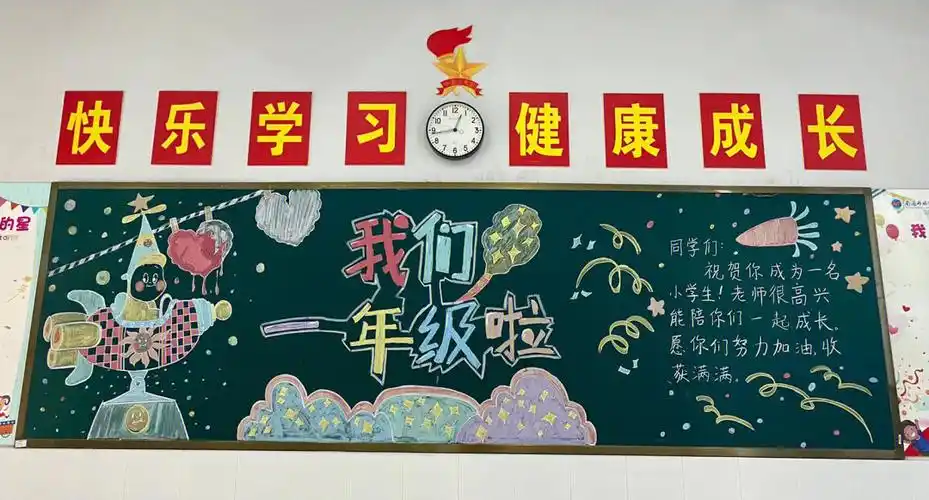 快乐学习 健康成长
12 1 2 3 4 5 6 7 8 9 10 11
的星
我
我们
一年级啦
同学们:
祝贺你成为一名
小学生!老师很高兴
能陪你们一起成长。
愿你们努力加油,收
获满满。